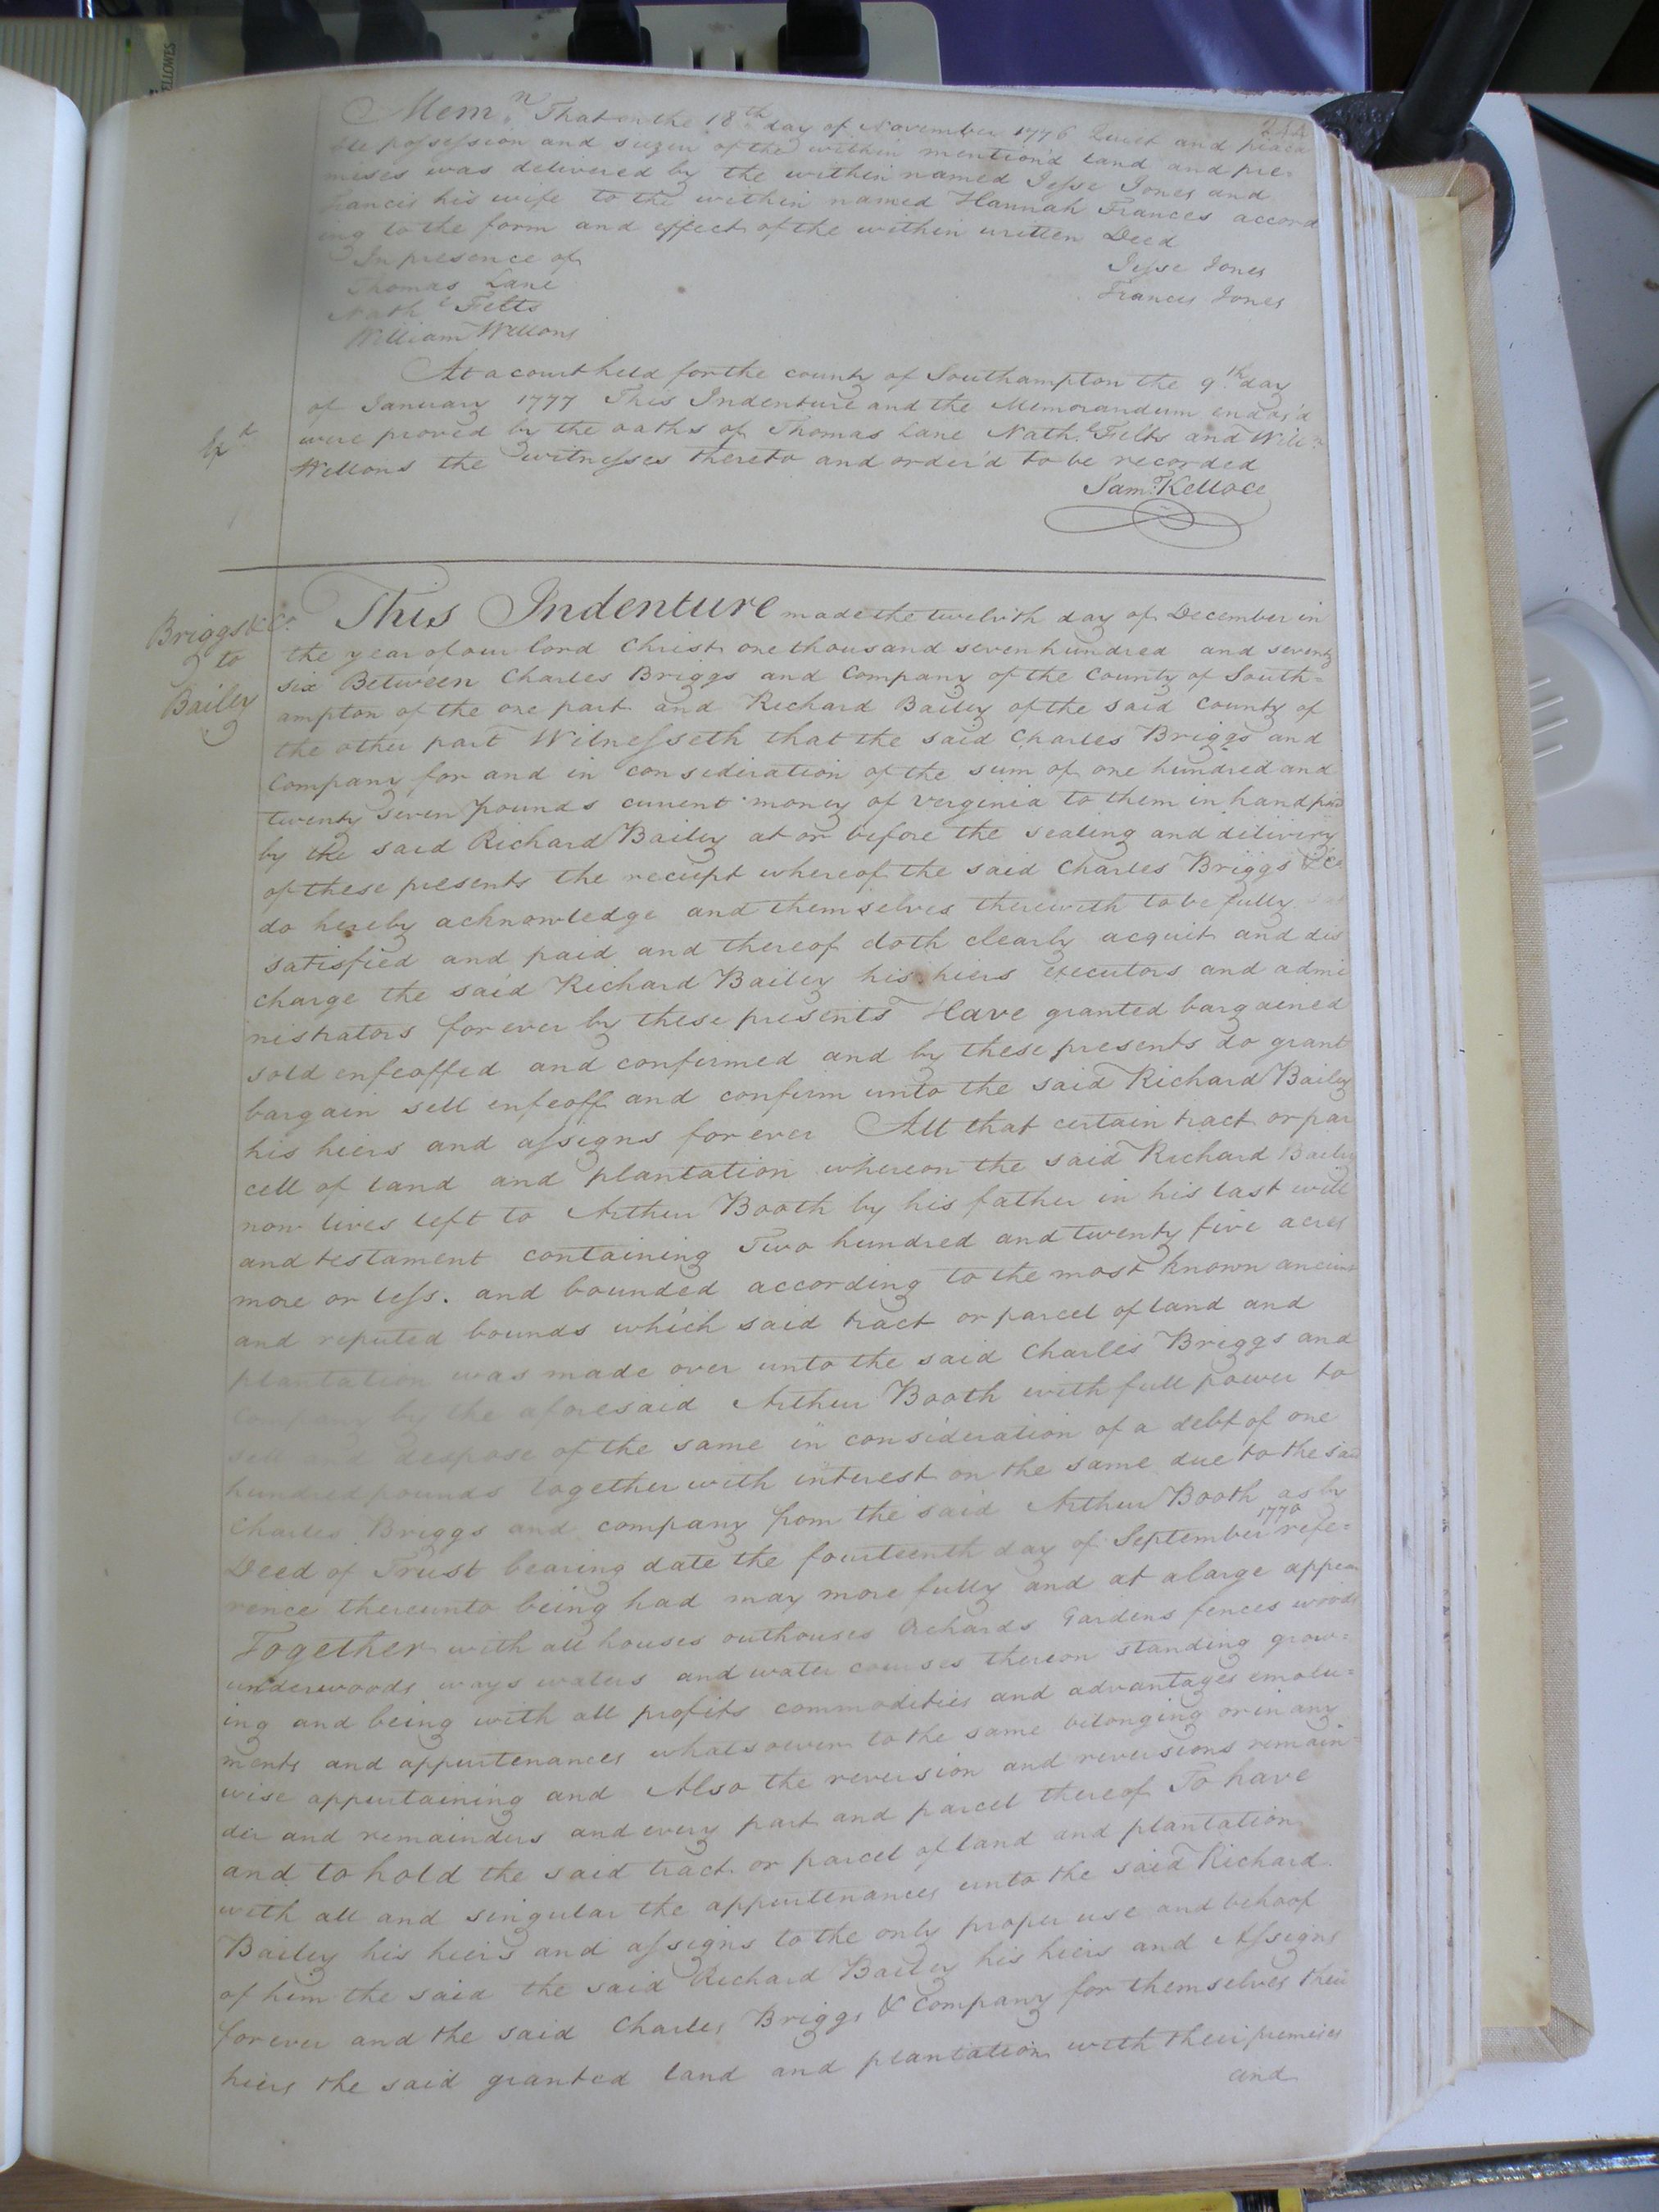 Mem.n That on the 18th day of November 1776 Quiet and peacea
ble possession and suzen of the within mention'd land and pre=
mises was delivered by the within named Jesse Jones and
Francis his wife to the within named Hannah Frances accord
ing to the form and effect of the within written Deed
In presence of
Jesse Jones
Thomas Lane
Francis Jones
Nath.e Felts
William Wellons
At a court held for the county of Southampton the 9.th day
of January 1777 This Indenture and the Memorandum endors'd
were proved by the oaths of Thomas Lane Nath.e Felts and Will.m
Wellons the witnesses thereto and order'd to be recorded
Sam.l Kelloce
Briggs & Co.
to
Bailey
This Indenture made the twelvith day of December in
the year of our lord Christ one thousand seven hundred and seventy
six Between Charles Briggs and Company of the County of South=
ampton of the one part and Richard Bailey of the said County of
the other part Witnesseth that the said Charles Briggs and
Company for and in consideration of the sum of one hundred and
twenty seven pounds current money of Verginia to them in hand paid
by the said Richard Bailey at or before the sealing and dilivery
of these presents the reciept whereof the said Charles Briggs & Co
do hereby acknowledge and themselves therewith to be fully
satisfied and paid and thereof doth clearly acquit and dis
charge the said Richard Bailey his hiers executors and admi
nistrators for ever by these presents Have granted bargained
sold enfeoffed and confirmed and by these presents do grant
bargain sell enfeoff and confirm unto the said Richard Bailey
his hiers and assigns for ever All that certain tract or par
cell of land and plantation whereon the said Richard Bailey
now lives left to Arthur Booth by his father in his last will
and testament containing Two hundred and twenty five acres
more or less. and bounded according to the most known ancient
and reputed bounds which said tract or parcel of land and
plantation was made over unto the said Charles Briggs and
Company by the aforesaid Arthur Booth with full power to
sell and despose of the same in consideration of a debt of one
hundred pounds together with interest on the same due to the said
Charles Briggs and company from the said Arthur Booth as by
Deed of Trust bearing date the fourteenth day of September 1770 refe=
rence thereunto being had may more fully and at alarge appear
Together with all houses outhouses Orchards Gardens fences woods
underwoods ways waters and water courses thereon standing grow=
ing and being with all profits commodities and advantages emolu=
ments and appurtenances whatsoever to the same belonging or in any
wise appurtaining and Also the revirsion and reversions remain=
der and remainders and every part and parcel thereof To have
and to hold the said tract or parcel of land and plantation
with all and singular the appurtenances unto the said Richard
Bailey his hiers and assigns to the only proper use and behoof
of him the said the said Richard Bailey his hiers and Assigns
for ever and the said Charles Briggs & Company for themselves their
hiers the said granted land and plantation with their premises
and